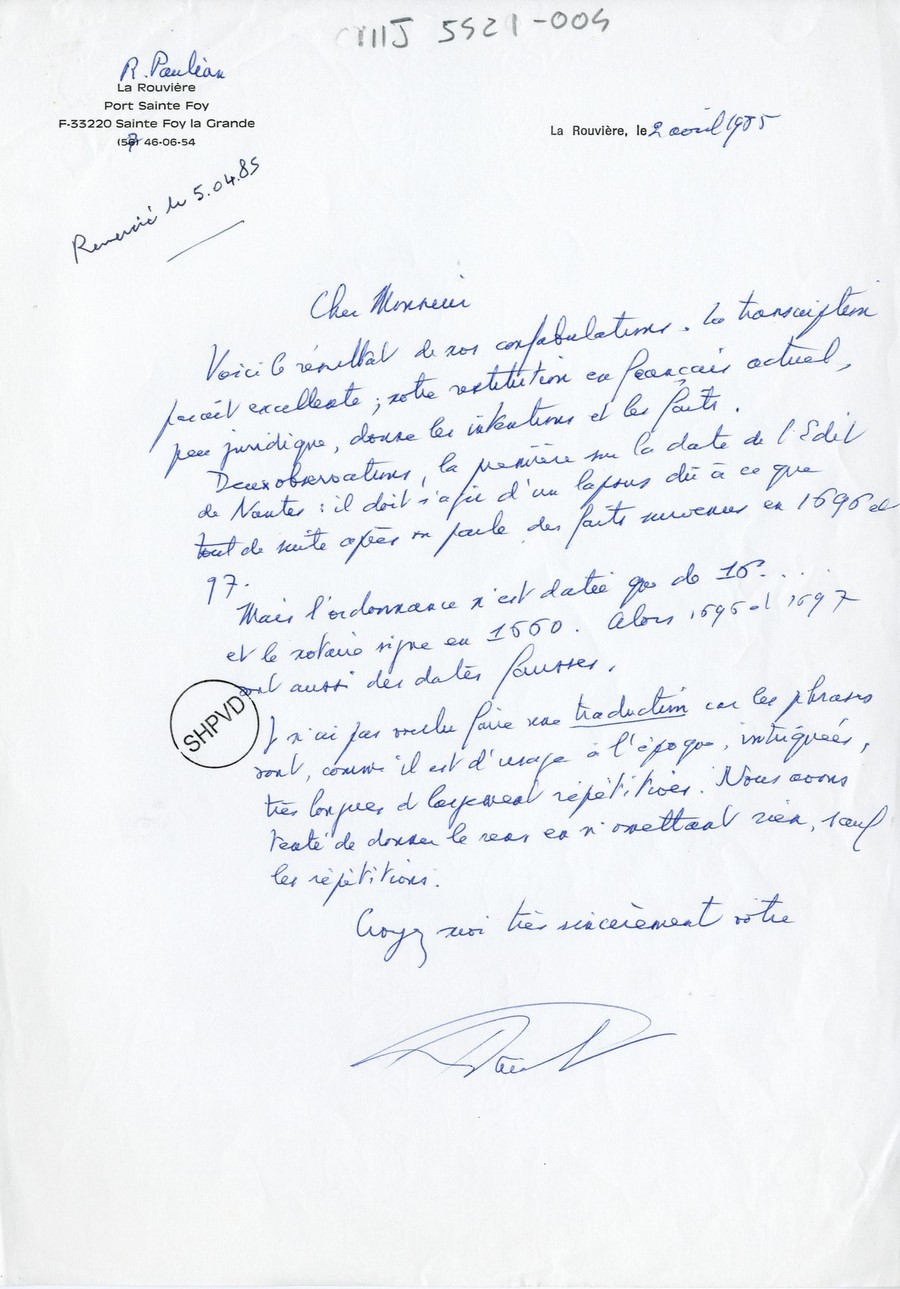 IIIJ 5521-004
R. Paulian
La Rouvière
Port Sainte Foy
F-33220 Sainte Foy la Grande
46-06-54
La Rouvière, le 2 avril 1985
Remercié le 5.04.85
Cher Monsieur
Voici le résultat de nos confabulations. La transcription
parait excellente ; notre restitution en français actuel,
peu juridique, donne les intentions et les faits.
Deux observations, la première sur la date de l'Edit
de Nantes : il doit s'agir d'un lapsus dû à ce que
tout de suite après on parle des faits survenus en 1696 et
97.
Mais l'ordonnance n'est datée que de 16....
et le notaire signe en 1660. Alors 1696 et 1697
sont aussi des dates fausses.
SHPVD
J n'ai pas voulu faire une traduction car les phrases
sont, comme il est d'usage à l'époque, intriquées,
très longues et largement répétitives. Nous avons
tenté de donner le sens en n'omettant rien, sauf
les répétitions.
Croyez moi très sincèrement vôtre